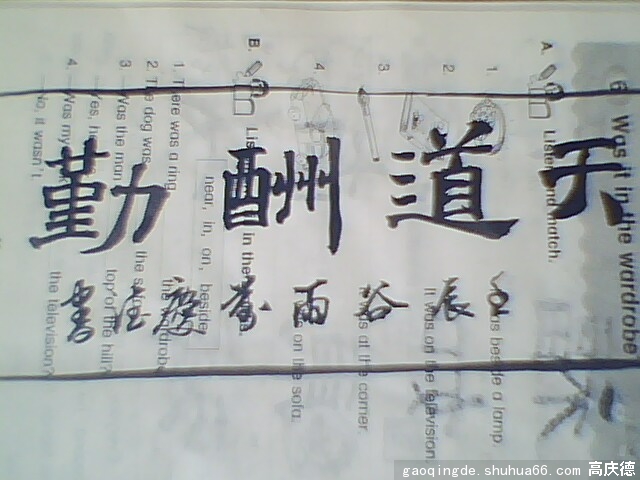 天道酬勤
辰谷雨
慶
書
6 Was it in the wardrobe
A. Listen and match.
1.
2.
3.
4.
us beside a lamp.
It was on the television.
as at the corner.
s on the sofa.
B. Lis in the
near, in, on, beside
1. There was a ring
2. The dog was the sofa
3. Was the man top of the hill?
Yes, h
4. Was my the television?
No, it wasn't.
gaoqingde.shuhua66.com 高庆德